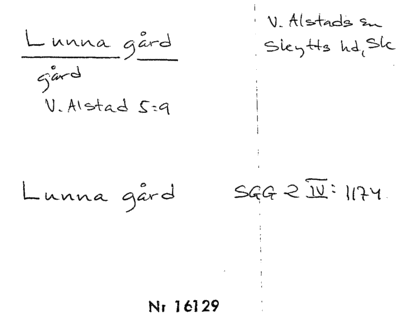 Lunna gård
gård
V. Alstad 5:9
V. Alstads sn
Skytts hd, Sk
Lunna gård
SGG 2 IV: 1174
Nr 16129